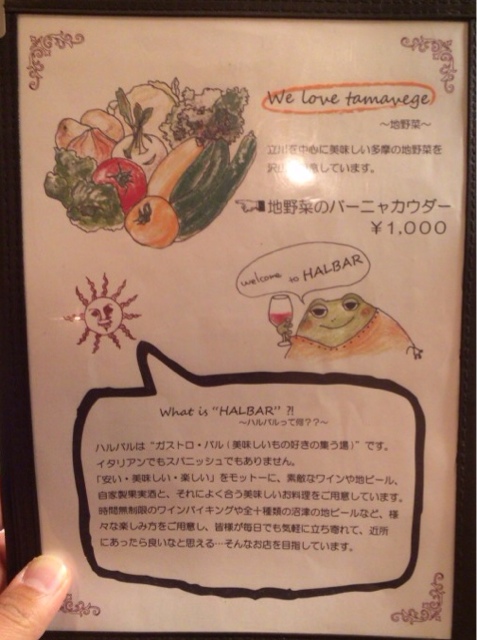 We love tamavege
～地野菜～
立川を中心に美味しい多摩の地野菜を
沢山ご用意しています。
地野菜のバーニャカウダー
￥1,000
welcome to HALBAR
What is "HALBAR" ?!
～ハルバルって何？？～
ハルバルは"ガストロ・バル（美味しいもの好きの集う場）"です。
イタリアンでもスパニッシュでもありません。
「安い・美味しい・楽しい」をモットーに、素敵なワインや地ビール、
自家製果実酒と、それによく合う美味しいお料理をご用意しています。
時間無制限のワインバイキングや全十種類の沼津の地ビールなど、様
々な楽しみ方をご用意し、皆様が毎日でも気軽に立ち寄れて、近所
にあったら良いなと思える…そんなお店を目指しています。